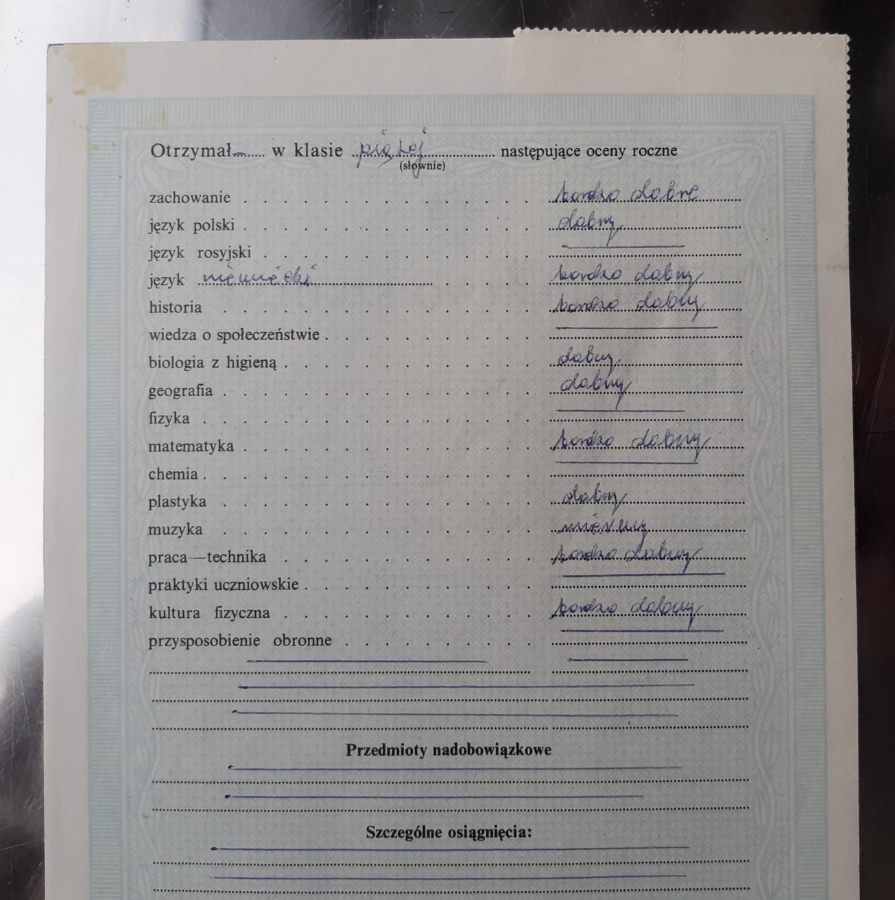 Otrzymał w klasie piątej następujące oceny roczne
(słownie)
zachowanie bardzo dobre
język polski dobry
język rosyjski
język niemiecki bardzo dobry
historia bardzo dobry
wiedza o społeczeństwie
biologia z higieną dobry
geografia dobry
fizyka
matematyka bardzo dobry
chemia
plastyka dobry
muzyka mierny
praca—technika bardzo dobry
praktyki uczniowskie
kultura fizyczna bardzo dobry
przysposobienie obronne
Przedmioty nadobowiązkowe
Szczególne osiągnięcia: